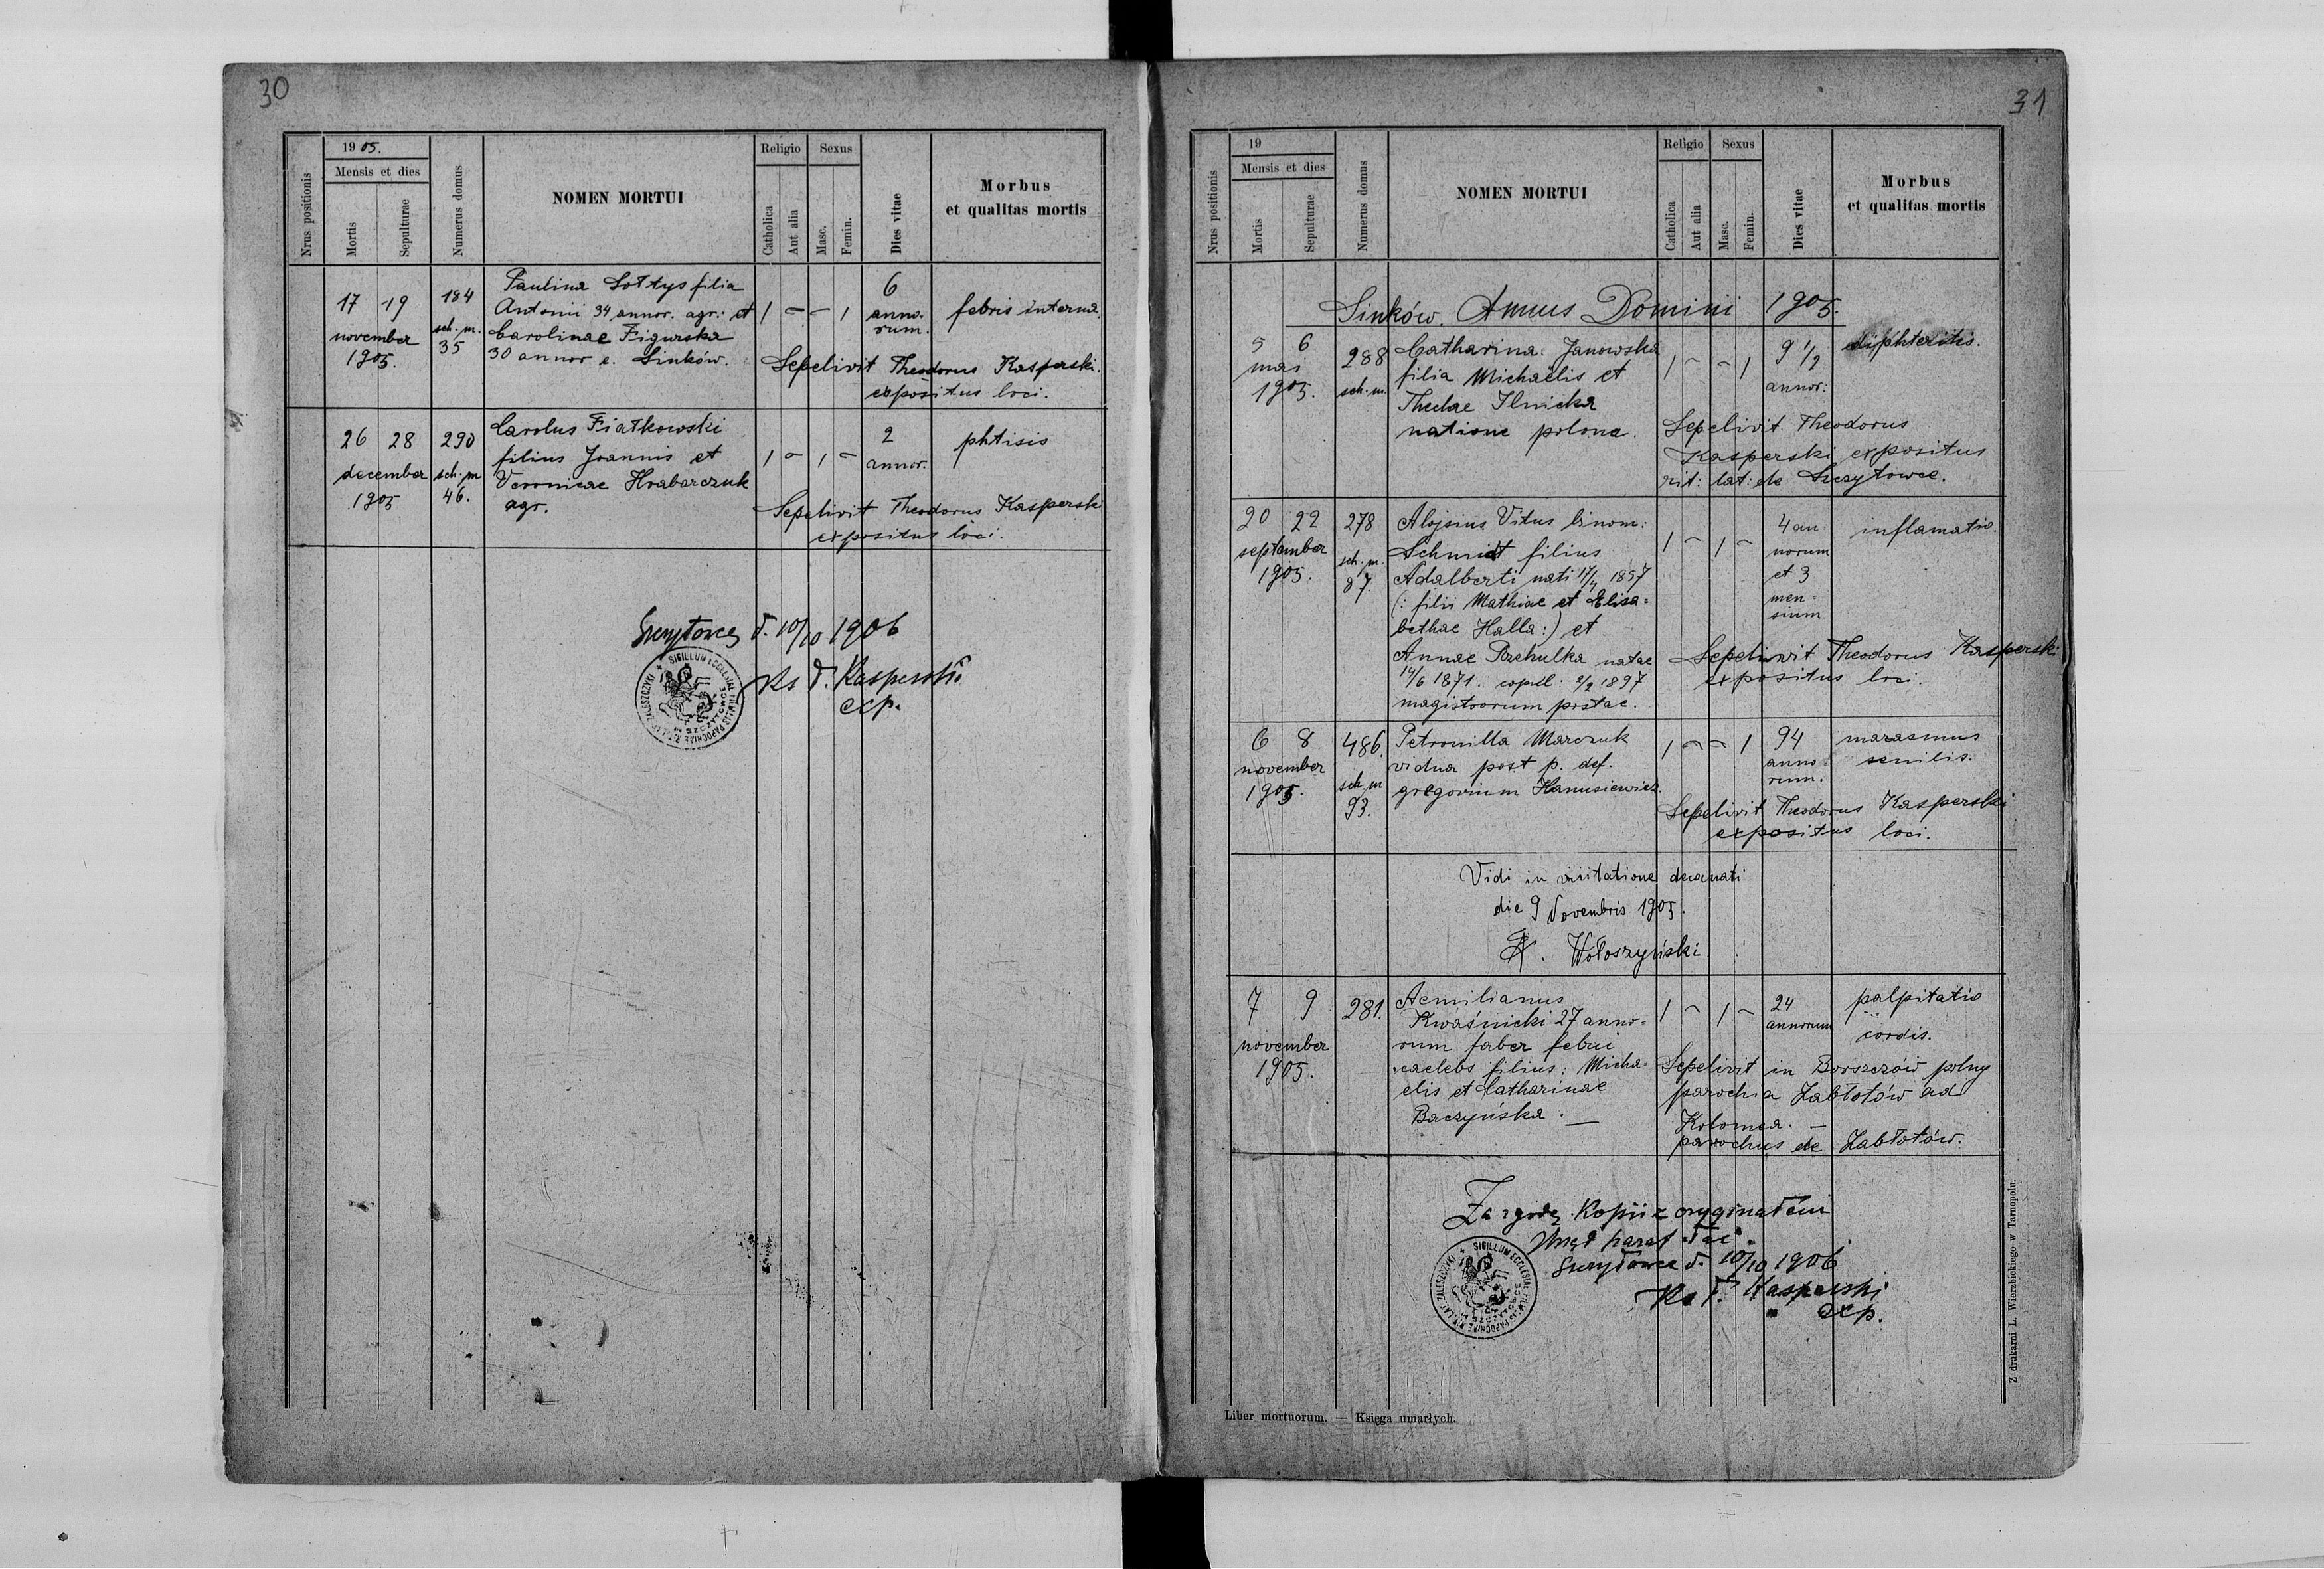 30
Nrus positionis
1905.
Mensis et dies
Mortis
Sepulturae
Numerus domus
NOMEN MORTUI
Religio
Catholica
Aut alia
Sexus
Masc.
Femin.
Dies vitae
Morbus
et qualitas mortis
17 19
november
1905.
184
sch. m.
35
Paulina Sołtys filia
Antonii 34 annor. agr: et
Carolinae Figurska
30 annor e. Sinków.
1 – – 1
6
anno-
rum.
febris interna.
Sepelivit Theodorus Kasperski.
expositus loci.
26 28
december
1905
290
sch. m
46.
Carolus Fiałkowski
filius Joannis et
Veronicae Hrabarczuk
agr.
1 – 1 –
2
annor.
phtisis
Sepelivit Theodorus Kasperski
expositus loci.
d. 10/10 1906
Ks T. Kasperski
exp.
31
Nrus positionis
19
Mensis et dies
Mortis
Sepulturae
Numerus domus
NOMEN MORTUI
Religio
Catholica
Aut alia
Sexus
Masc.
Femin.
Dies vitae
Morbus
et qualitas mortis
Sinków. Annus Domini 1905.
5 6
mai
1905.
288
sch. m.
Catharina Janowska
filia Michaëlis et
Theclae Ilnicka
natione polona.
1 – – 1
9 1/2
annor:
diphteritis.
Sepelivit Theodorus
Kasperski expositus
rit: lat: de Szczytowce.
20 22
september
1905.
278
sch. m.
87.
Alojsius Vitus binom:
Schmidt filius
Adalberti nati 17/4 1857
(: filii Mathiae et Elisa=
bethae Halla:) et
Annae Rzehulka natae
14/6 1871. copul: 2/2 1897
magistrorum postae.
1 – 1 –
4 an-
norum
et 3
men-
sium
inflamatio.
Sepelivit Theodorus Kasperski
expositus loci.
6 8
november
1905.
486.
sch. m
93.
Petronilla Marczuk
vidua post p. def.
gregorium Hanusiewicz.
1 – – 1
94
anno
rum.
marasmus
senilis.
Sepelivit Theodorus Kasperski
expositus loci.
Vidi in visitatione decanati
die 9 Novembris 1905.
Wołoszyński
7 9
november
1905.
281.
Aemilianus
Kwaśnicki 27 anno-
rum faber febrii
caelebs filius: Micha-
elis et Catharinae
Baczyńska. —
1 – 1 –
24
annorum
palpitatio
cordis.
Sepelivit in Borszczów polny
parochia Zabłotów ad
Kolomea. —
parochus de Zabłotów.
Za zgodę Kopii z oryginałem
Urząd paraf
d. 10/10 1906
Ks T. Kasperski
exp.
Liber mortuorum. — Księga umarłych.
Z drukarni L. Wierzbickiego w Tarnopolu.